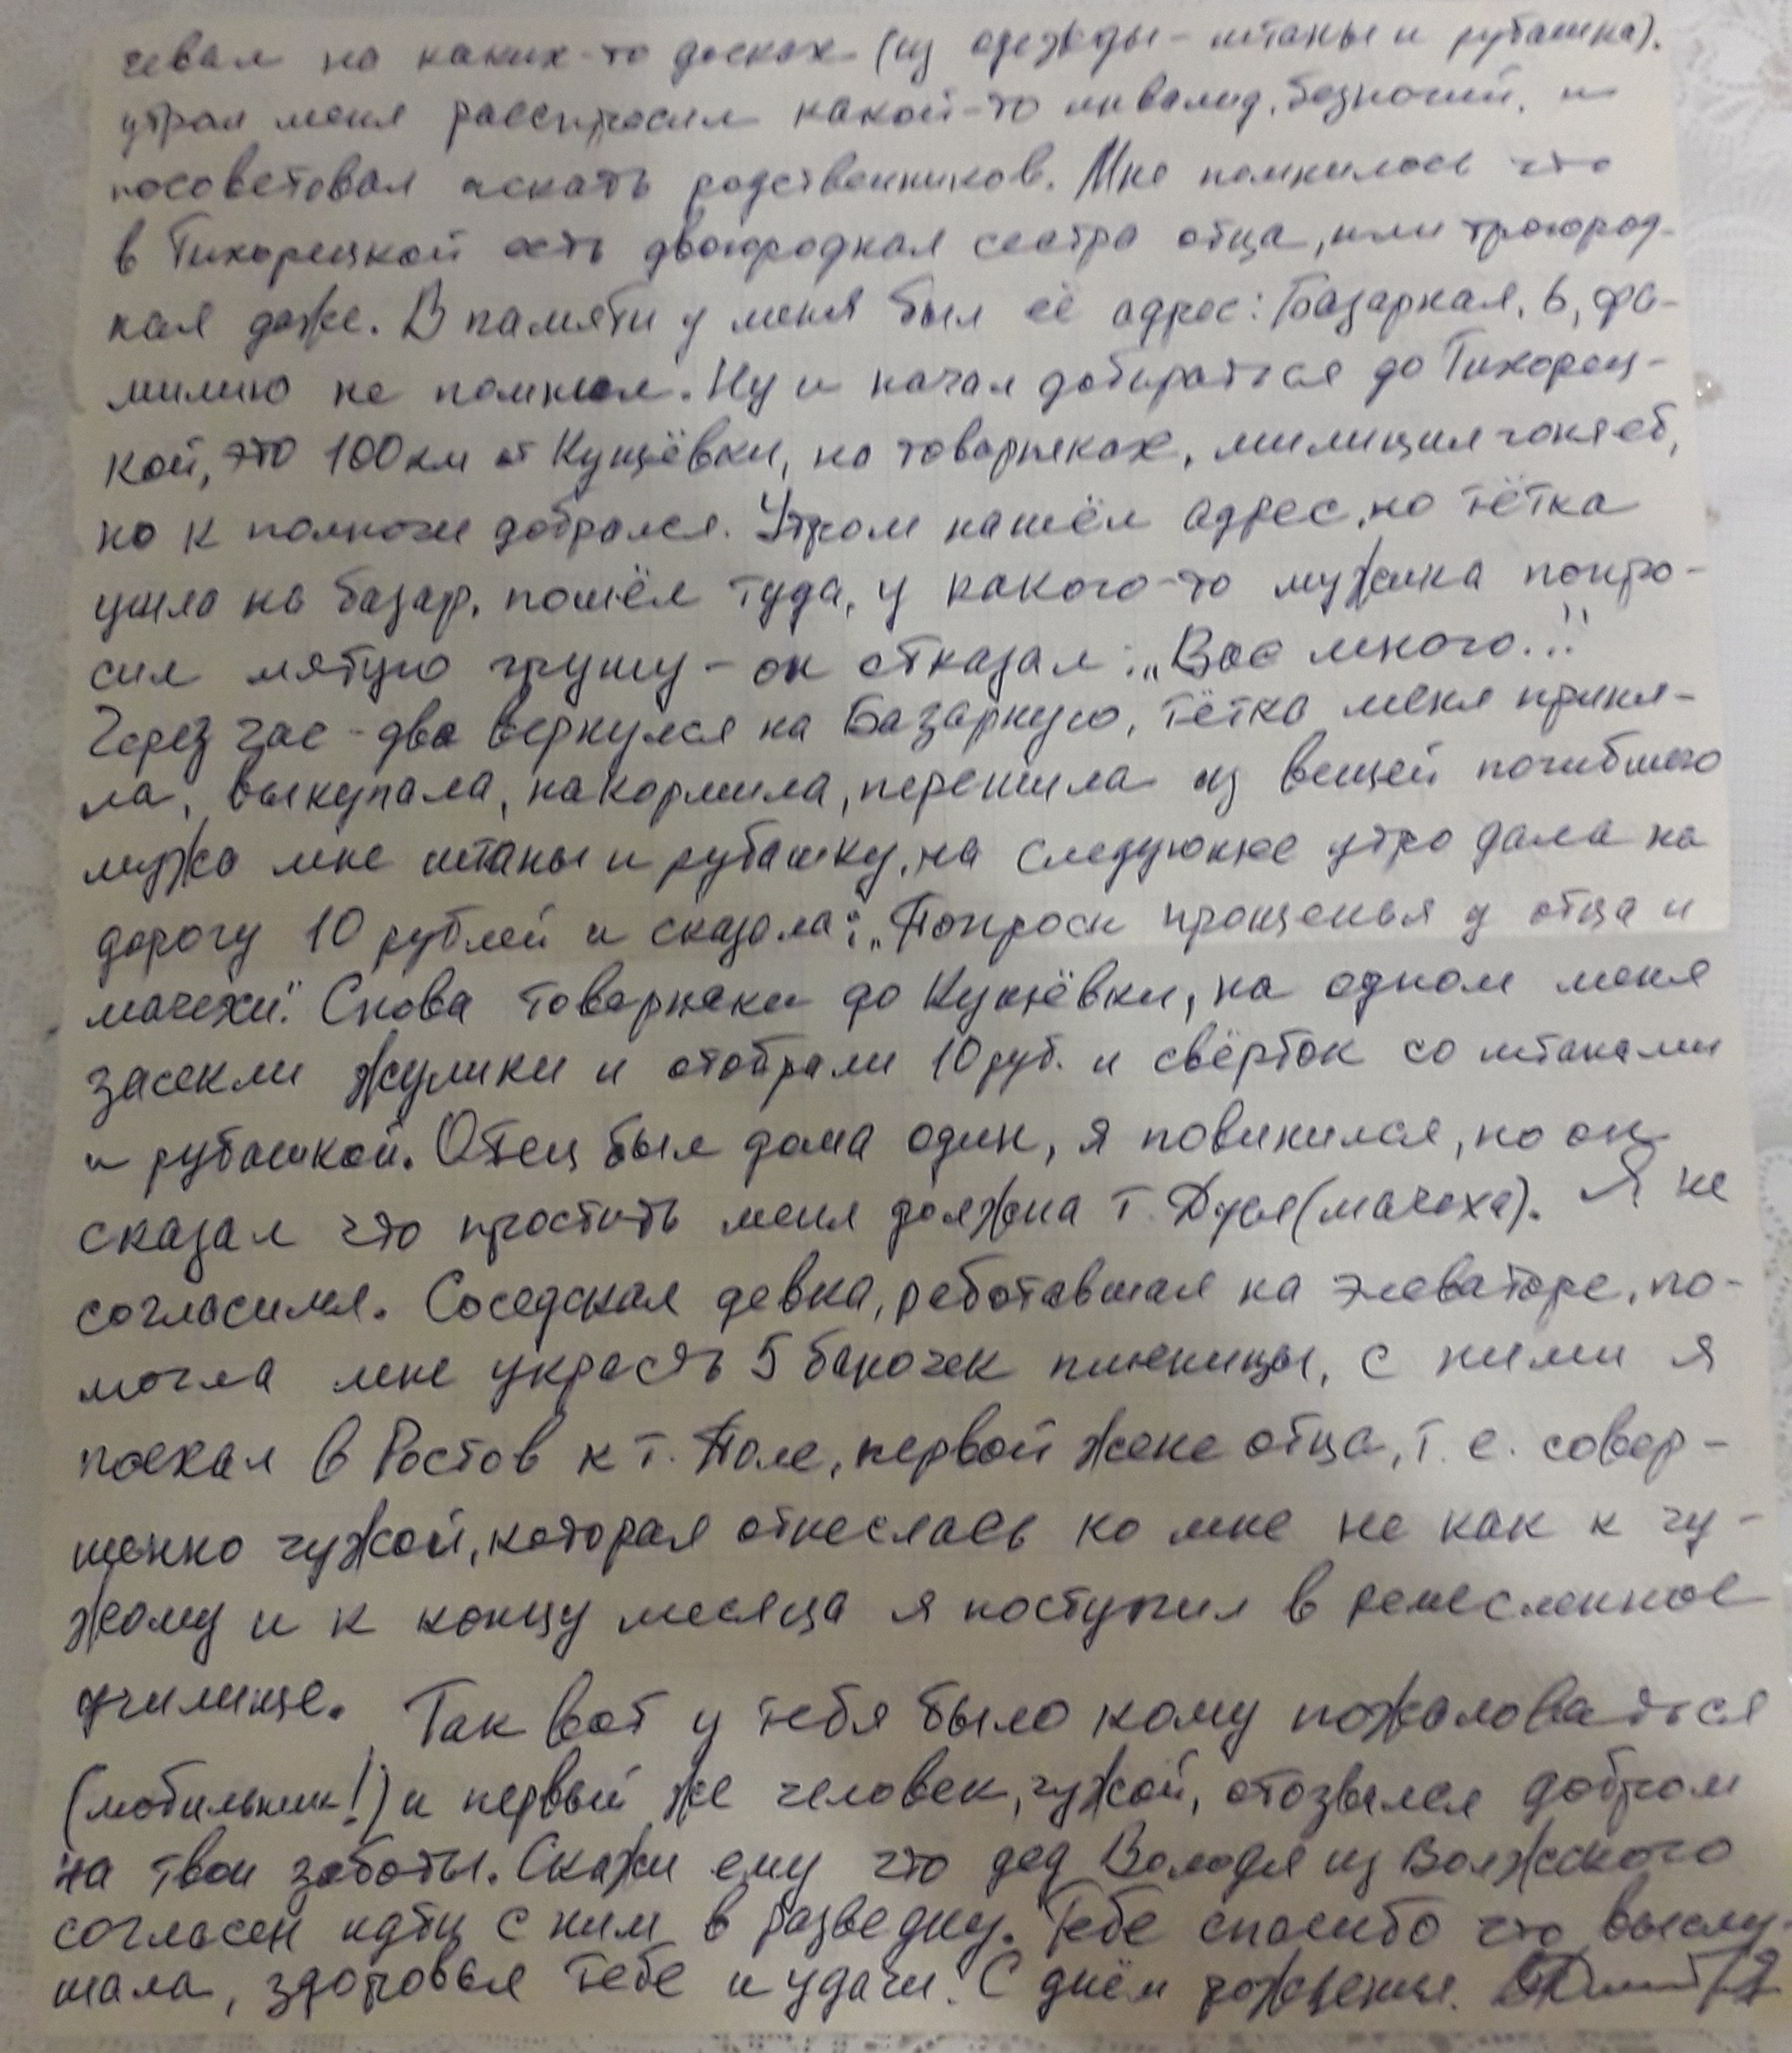 чевал на каких-то досках (из одежды - штаны и рубашка).
утром меня расспросил какой-то инвалид, безногий, и
посоветовал искать родственников. Мне помнилось что
в Тихорецкой есть двоюродная сестра отца, или троюрод-
ная даже. В памяти у меня был её адрес: Базарная, 6, фа-
милию не помнил. Ну и начал добираться до Тихорец-
кой, это 100 км от Кущёвки, на товарняках, милиция гоняет,
но к полночи добрался. Утром нашёл адрес, но тётка
ушла на базар, пошёл туда, у какого-то мужика попро-
сил мятую грушу - он отказал: „Вас много..."
Через час-два вернулся на Базарную, тётка меня приня-
ла, выкупала, накормила, перешила из вещей погибшего
мужа мне штаны и рубашку, на следующее утро дала на
дорогу 10 рублей и сказала: „Попроси прощенья у отца и
мачехи". Снова товарняки до Кущёвки, на одном меня
засекли жулики и отобрали 10 руб. и свёрток со штанами
и рубашкой. Отец был дома один, я повинился, но он
сказал что простить меня должна т. Дуся (мачеха). Я не
согласился. Соседская девка, работавшая на элеваторе, по-
могла мне украсть 5 баночек пшеницы, с ними я
поехал в Ростов к т. Поле, первой жене отца, т. е. совер-
шенно чужой, которая отнеслась ко мне не как к чу-
жому и к концу месяца я поступил в ремесленное
училище. Так вот у тебя было кому пожаловаться
(мобильник!) и первый же человек, чужой, отозвался добром
на твои заботы. Скажи ему что дед Володя из Волжского
согласен идти с ним в разведку. Тебе спасибо что выслу-
шала, здоровья тебе и удачи. С днём рожденья.